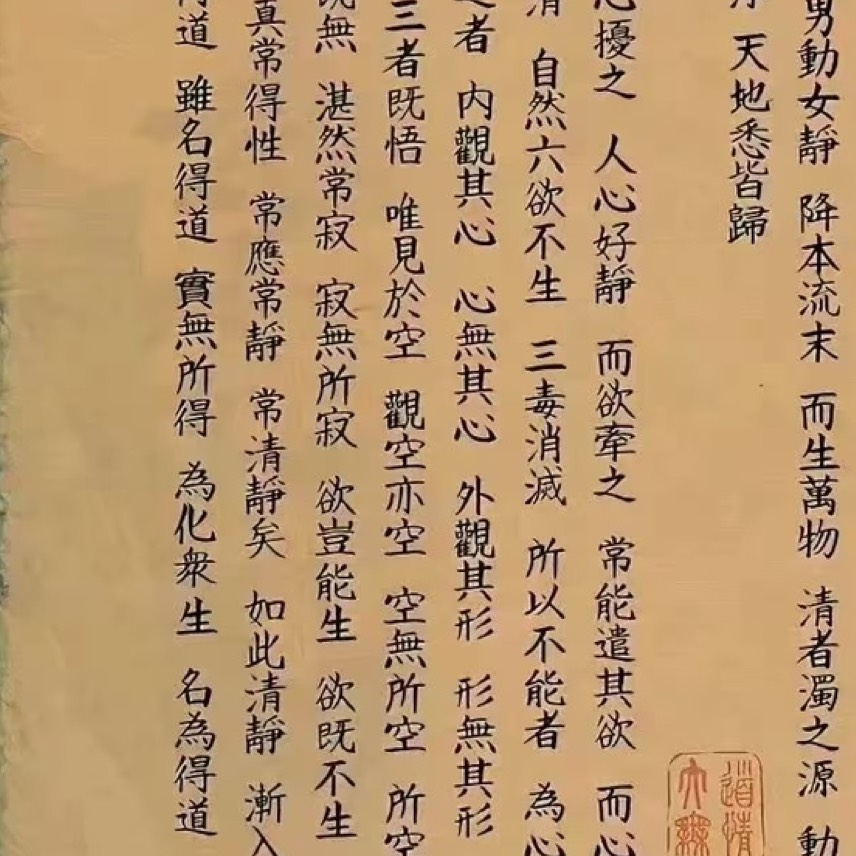 男動女靜 降本流末 而生萬物 清者濁之源 動
天地悉皆歸
心擾之 人心好靜 而欲牽之 常能遣其欲 而心
清 自然六欲不生 三毒消滅 所以不能者 為心
者 內觀其心 心無其心 外觀其形 形無其形
三者既悟 唯見於空 觀空亦空 空無所空 所空
既無 湛然常寂 寂無所寂 欲豈能生 欲既不生
真常得性 常應常靜 常清靜矣 如此清靜 漸入
得道 雖名得道 實無所得 為化衆生 名為得道
道情